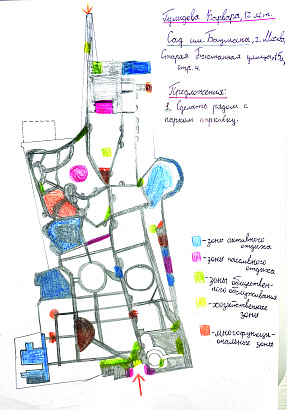 Гулидова Варвара, 12 лет.
Сад им. Баумана, г. Москва,
Старая Басманная улица, 15а,
стр. 4.
Предложения:
1. Сделать рядом с
парком парковку.
-зоны активного
отдыха
-зоны пассивного
отдыха
-зоны обществен-
ного обслуживания
-хозяйственные
зоны
-многофункци-
ональные зоны